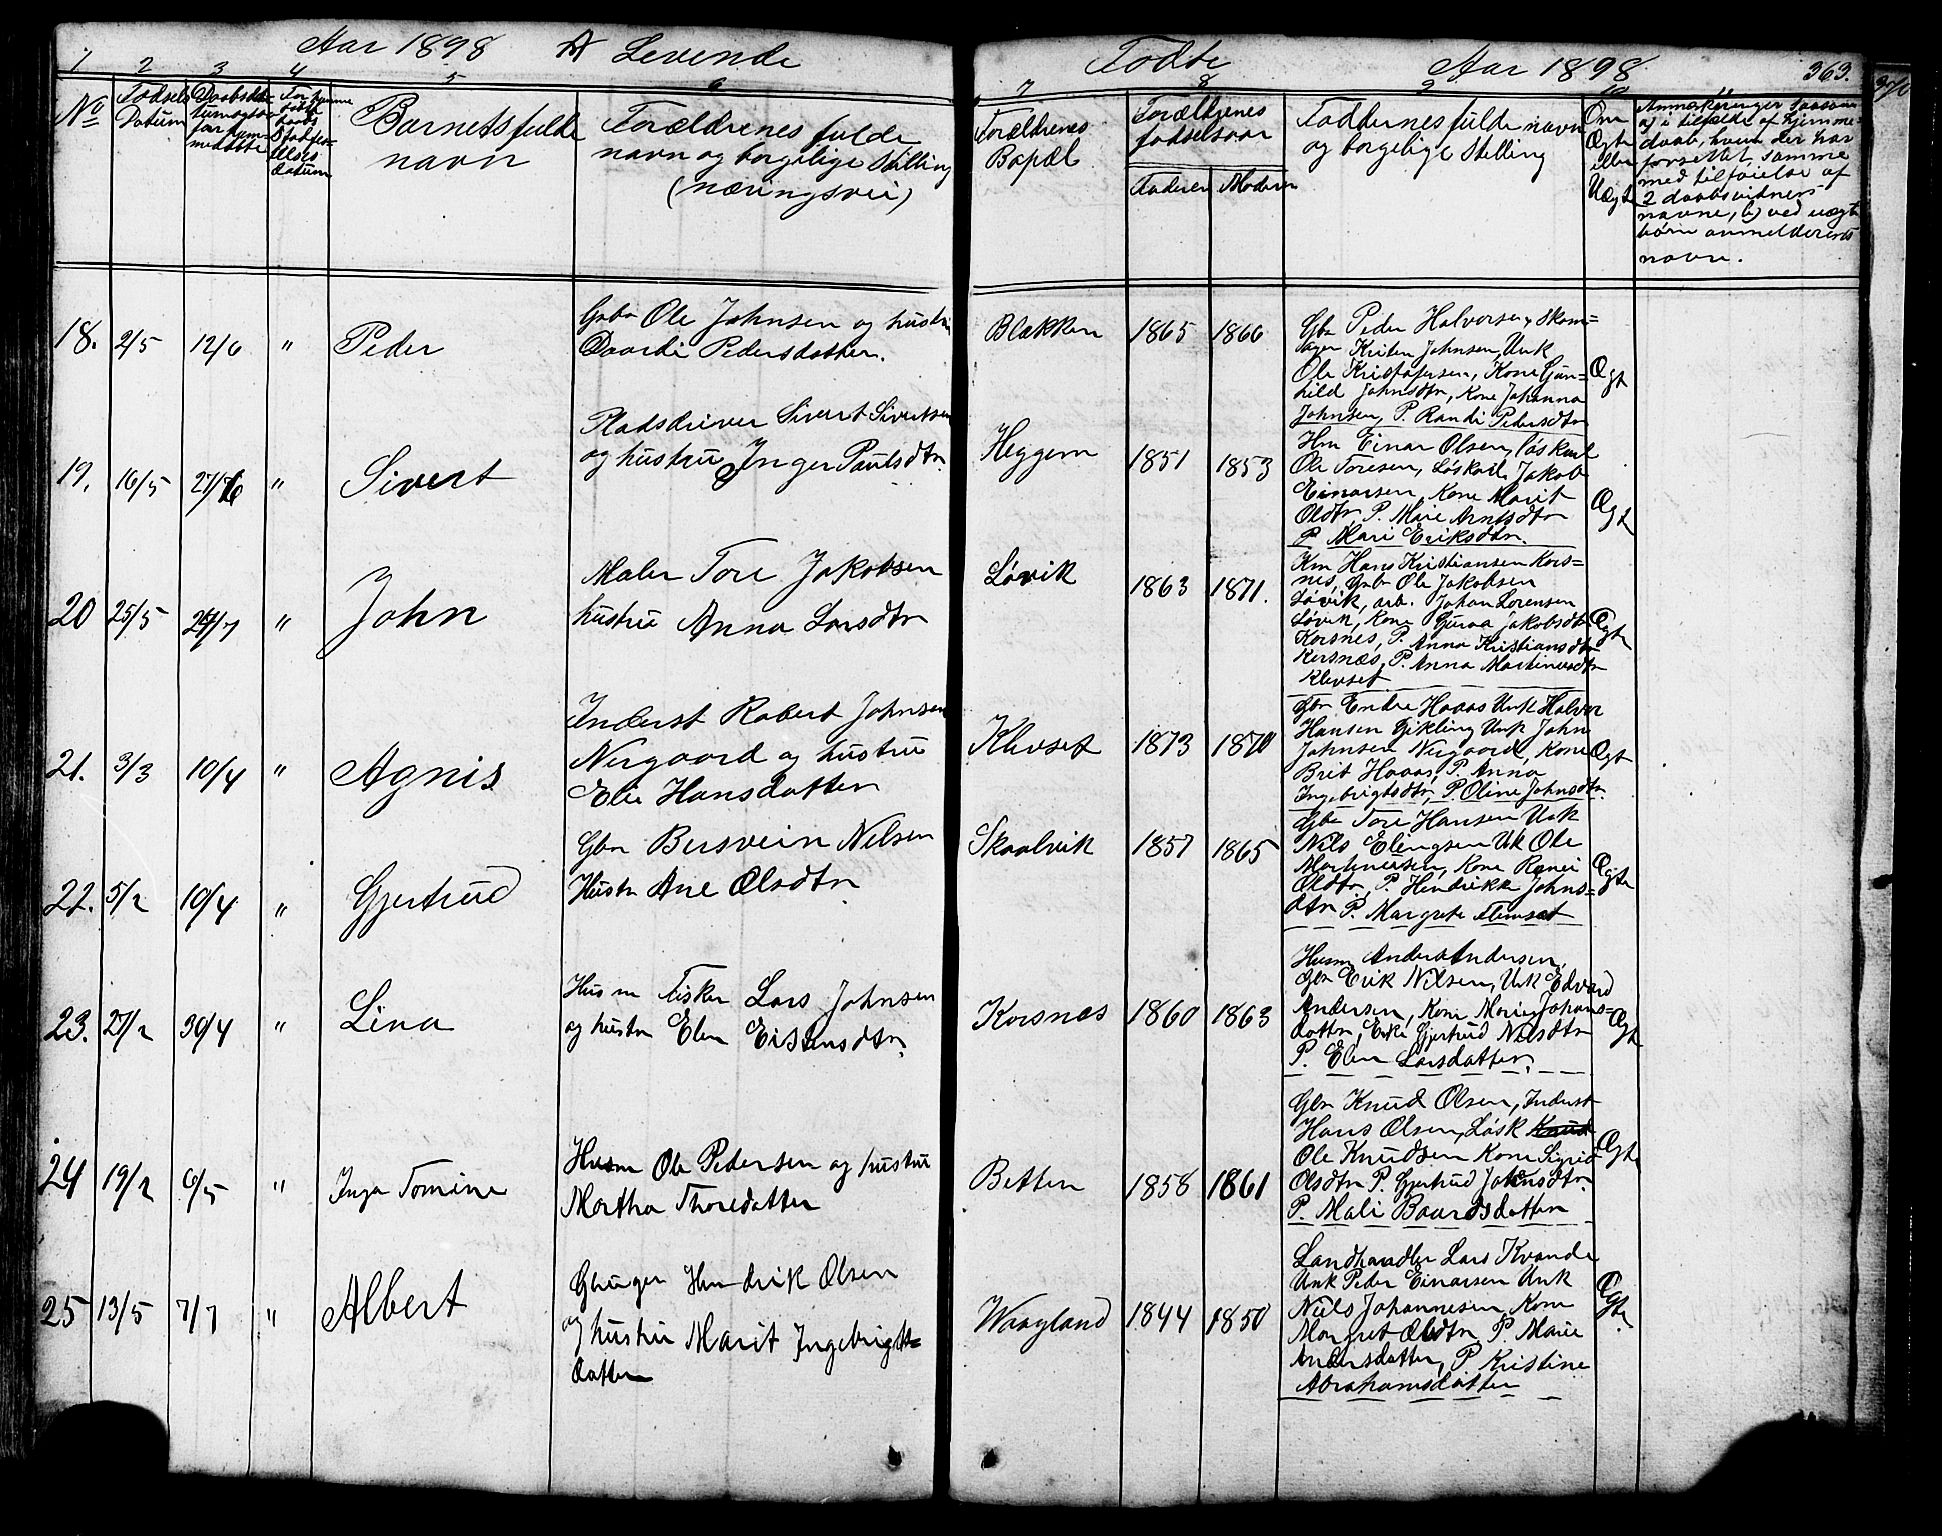 Aar 1898 A Levende Fødte Aar 1898 363.
1 2 3 4 5 6 7 8 9 10
No Fødsels Datum
Barnets fulde navn
Forældrenes fulde
navn og borgelige Stilling
(næringsvei)
Forældrenes
Bopæl
Forældrenes
fødselsaar
Faderen Moderen
Faddernes fulde navn
og borgelige Stilling
Om
Ægte
eller
Uægte
Anmærkninger saasom
a) i tilfælde af hjemme-
daab, hvem der har
forrettet samme
med tilføielse af
2 daabsvidners
navne, b) ved uægte
børn anmelderens
navn.
18. 2/5 12/6 " Peder
Gbr Ole Johnsen og hustru
Baardi Pedersdatter.
Blakken 1865 1866
Gbr Peder Halvorsen, Skom=
ager Kristen Johnsen, Unk
Ole Kristofersen, Kone Gun=
hild Johnsdtr, Kone Johanna
Johnsen, P. Randi Pedersdtr
Ægt
19. 16/5 " Sivert
Pladsdriver Sivert Sivertsen
og hustru Inger Paulsdtr.
Heggem 1851 1853
Hm Einar Olsen, løskarl
Ole Toresen, Løskarl Jakob
Einarsen, Kone Marit
Olsdtr, P. Mari Arntsdtr
P Mari Eriksdtr.
Ægt
20 25/5 24/7 " John
Maler Tore Jakobsen
hustru Anna Larsdtr
Løvik 1863 1871.
Km Hans Kristiansen Kors=
nes, Gbr Ole Jakobsen
Løvik, arb. Johan Lorensen
Løvik, Kone Guraa Jakobsdtr
Korsnes, P. Anna Kristiansdtr
Korsnæs, P. Anna Martinusdtr
Klevset
Ægte
21. 3/3 10/4 " Agnis
Inderst Robert Johnsen
Nergaard og hustru
Elie Hansdatter
Klevset 1873 1870
Gbr Endre Haaas Unk Halvor
Hansen Gikling Unk John
Johnsen Nergaard, Kone
Brit Haaas, P. Anna
Ingebrigtsdtr, P. Oline Johnsdtr.
Ægt
22. 5/2 10/4 " Gjertrud
Gbr Bersvein Nilsen
Hustr Ane Olsdtr
Skaalvik 1857 1865
Gbr Tore Hansen Unk
Nils Elingsen Uk Ole
Martinusen, Kone Ranei
Olsdtr, P. Hendrikke Johns=
dtr P. Margrete Flemsæt
Ægte
23. 27/2 30/4 " Lina
Husm Fisker Lars Johnsen
og hustr Elen Eistensdtr.
Korsnæs 1860 1863
Husm Anders Andersen,
Gbr Erik Nilsen, Unk Edvard
Andersen, Kone Marie Johans=
datter, Enke Gjertrud Nilsdtr
P. Elen Larsdatter.
Ægte
24 19/2 6/5 " Inga Tomine
Husm Ole Pedersen og hustru
Martha Thoredatter
Betten 1858 1861
Gbr Knud Olsen, Inderst
Hans Olsen, Løsk Knud
Ole Knudsen Kone Sigrid
Olsdtr P. Gjertrud Johnsdtr.
P. Mali Baardsdatter
Ægte
25 13/5 7/7 " Albert
Gbruger Hendrik Olsen
og hustru Marit Ingebrigts=
datter
Waagland 1844 1850
Landhandler Lars Kvande
Unk Peder Einarsen Unk
Niels Johannesen, Kone
Margret Olsdtr, P. Marie
Andersdatter, P Kristine
Abrahamsdatter
Ægte.